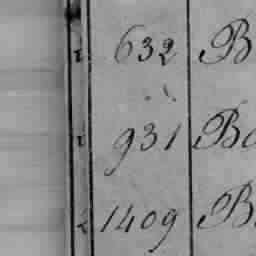 632 B
931 Ba
1409 B